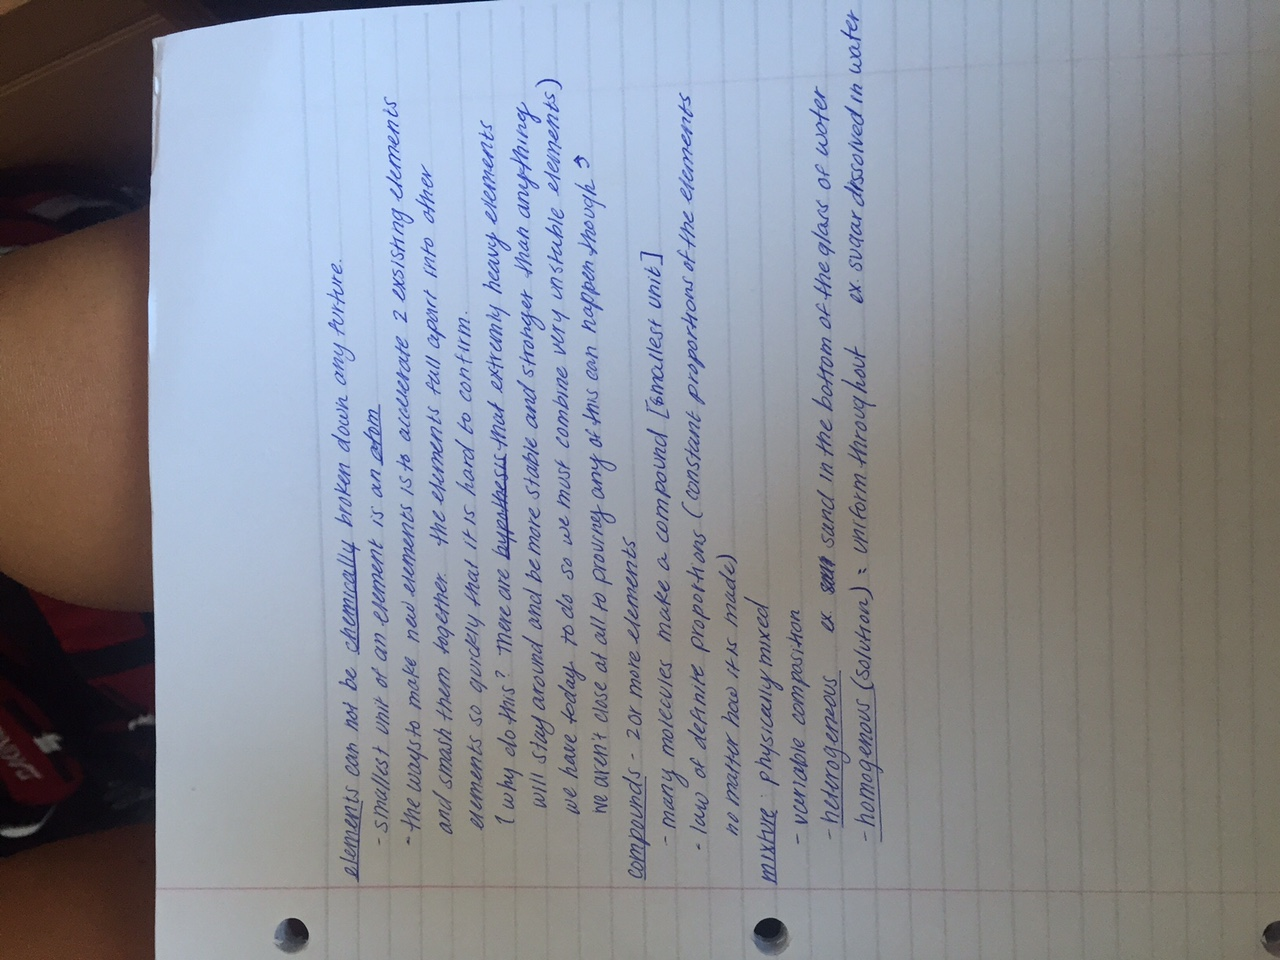 elements can not be chemically broken down any furture.
- smallest unit of an element is an atom
- the ways to make new elements is to accelerate 2 exsisting elements
and smash them together. the elements fall apart into other
elements so quickly that it is hard to confirm.
(why do this? There are hypothesis that extremly heavy elements
will stay around and be more stable and stronger than anything
we have today to do so we must combine very unstable elements)
we aren't close at all to proving any of this can happen though
compounds - 2 or more elements
- many molecules make a compound [smallest unit]
- law of definite proportions (constant proportions of the elements
no matter how it is made)
mixture: physically mixed
- variable composition
- heterogenous ex sand in the bottom of the glass of water
- homogenous (solution) = uniform throughout ex sugar dissolved in water